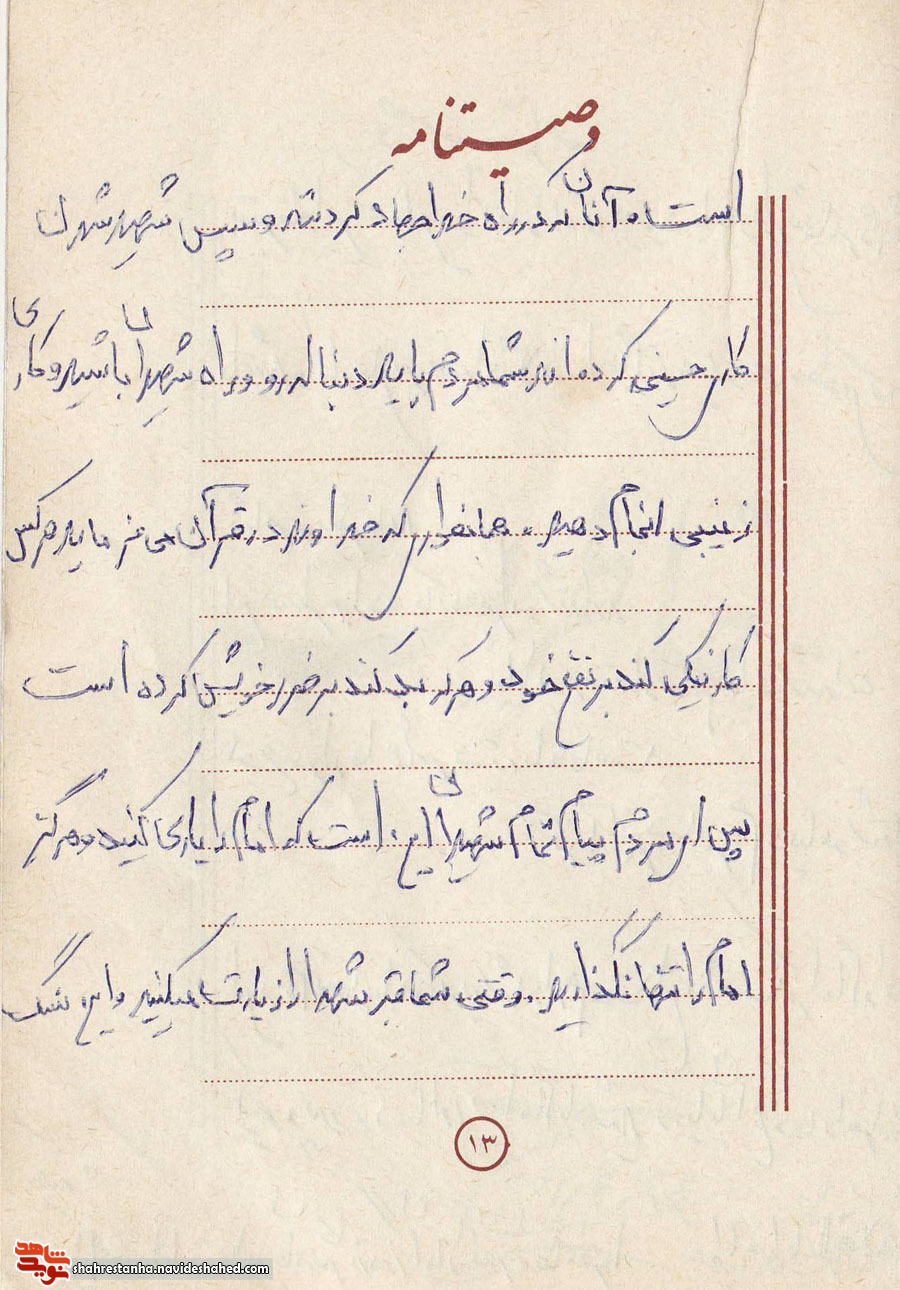 وصیتنامه
است. آنان که در راه خدا جهاد کردند و سپس شهید شدند
کار حسینی کرده‌اند شما مردم باید دنباله رو و راه شهدای ما باشید و کاری
زینبی انجام دهید. همانطوری که خداوند در قرآن می فرماید هر کس
کار نیکی کند بر نفع خود و هر که بد کند بر ضرر خویش کرده است
پس ای مردم پیام تمام شهدای این است که امام را یاری کنید و هرگز
امام را تنها نگذارید. وقتی شما قبر شهدا را زیارت میکنید و این سنگ
۱۳
شاهد
نوید
shahrestanha.navideshahed.com